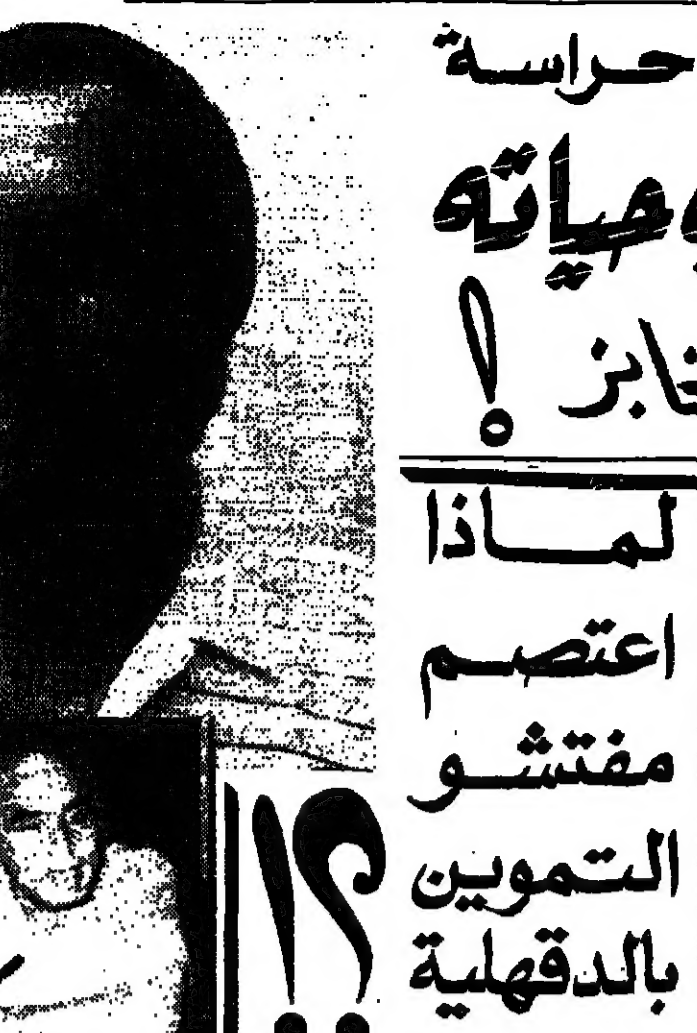 حراسة
!
لماذا
اعتصم
مفتشو
التموين
بالدقهلية
؟!